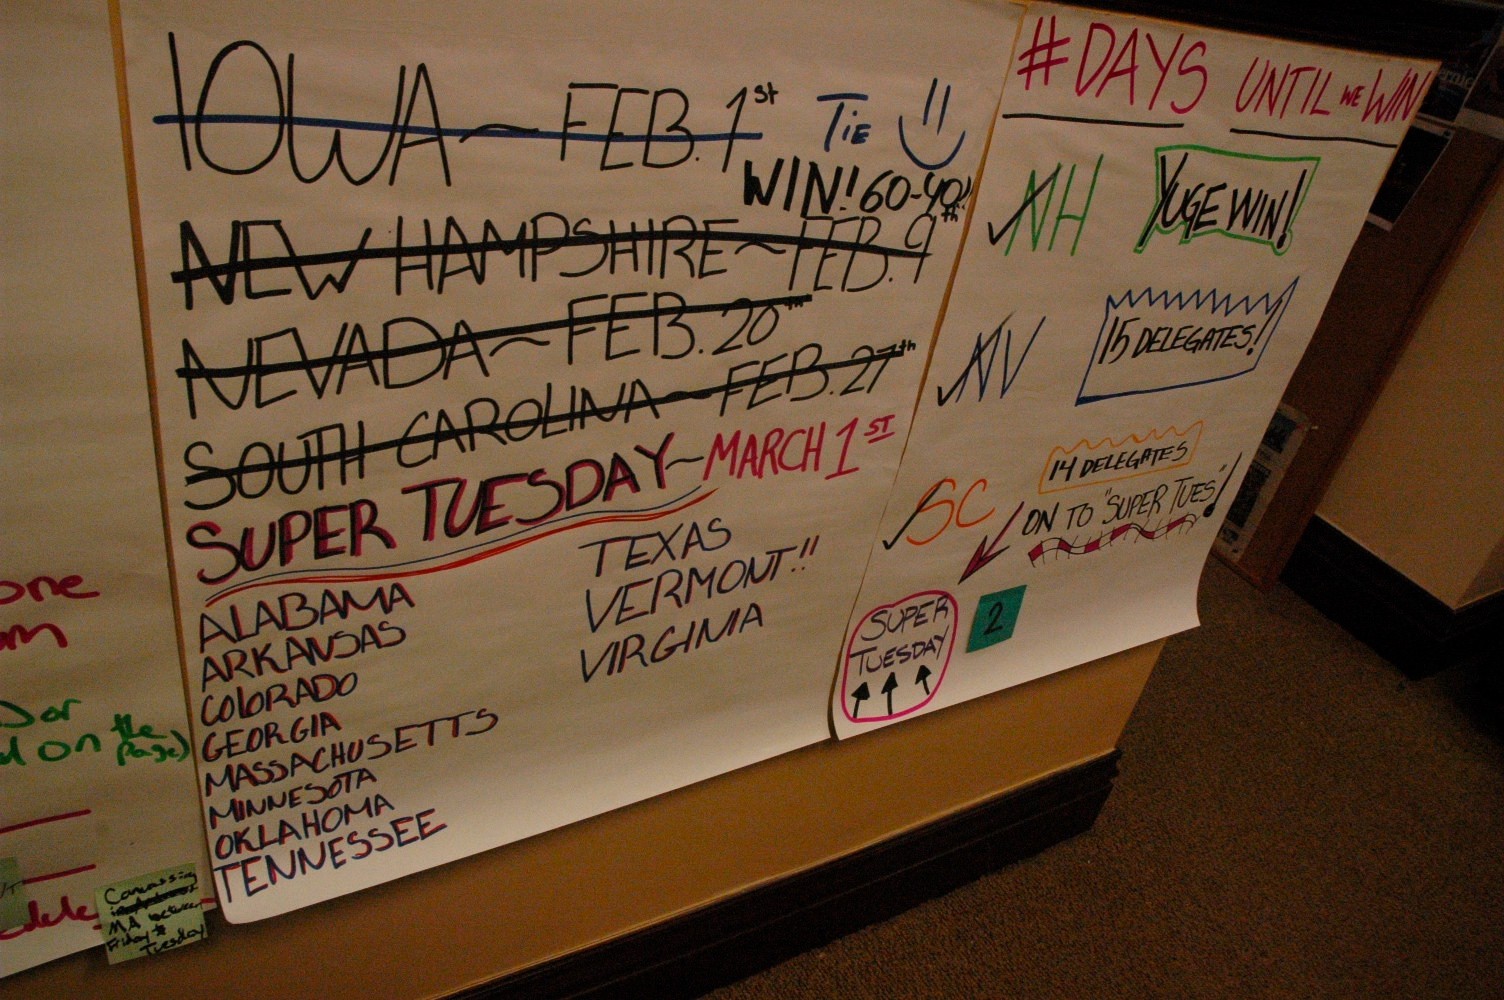 IOWA ~ FEB. 1st TIE
WIN! 60-40!!
NEW HAMPSHIRE ~ FEB. 9th
NEVADA ~ FEB. 20th
SOUTH CAROLINA ~ FEB. 27th
SUPER TUESDAY ~ MARCH 1ST
ALABAMA
ARKANSAS
COLORADO
GEORGIA
MASSACHUSETTS
MINNESOTA
OKLAHOMA
TENNESSEE
TEXAS
VERMONT!!
VIRGINIA
#DAYS UNTIL WE WIN
NH YUGE WIN!
NV 15 DELEGATES!
SC 14 DELEGATES
ON TO "SUPER TUES"!
SUPER
TUESDAY
2
on the
page)
Canvassing
MA between
Friday &
Tuesday